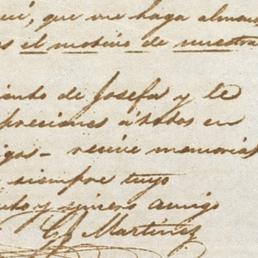 que me haga
el motivo de nuestra
de Josefa y te
presiones á todos en
recive memorias
siempre tuyo
y sincero amigo
Martinez